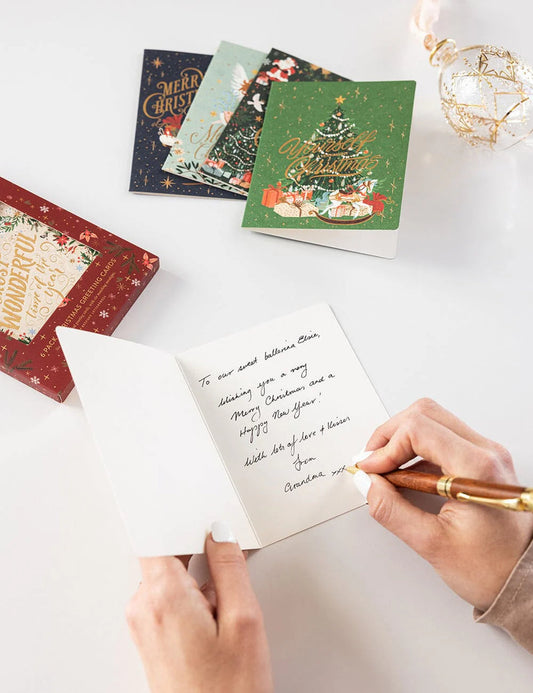 MERRY
CHRISTMAS
Yourself
Christmas
MOST
WONDERFUL
time of the
Year
6 PACK CHRISTMAS GREETING CARDS
To our sweet ballerina Elsie,
Wishing you a very
Merry Christmas and a
Happy New Year!
With lots of love + kisses
from
Grandma xxx